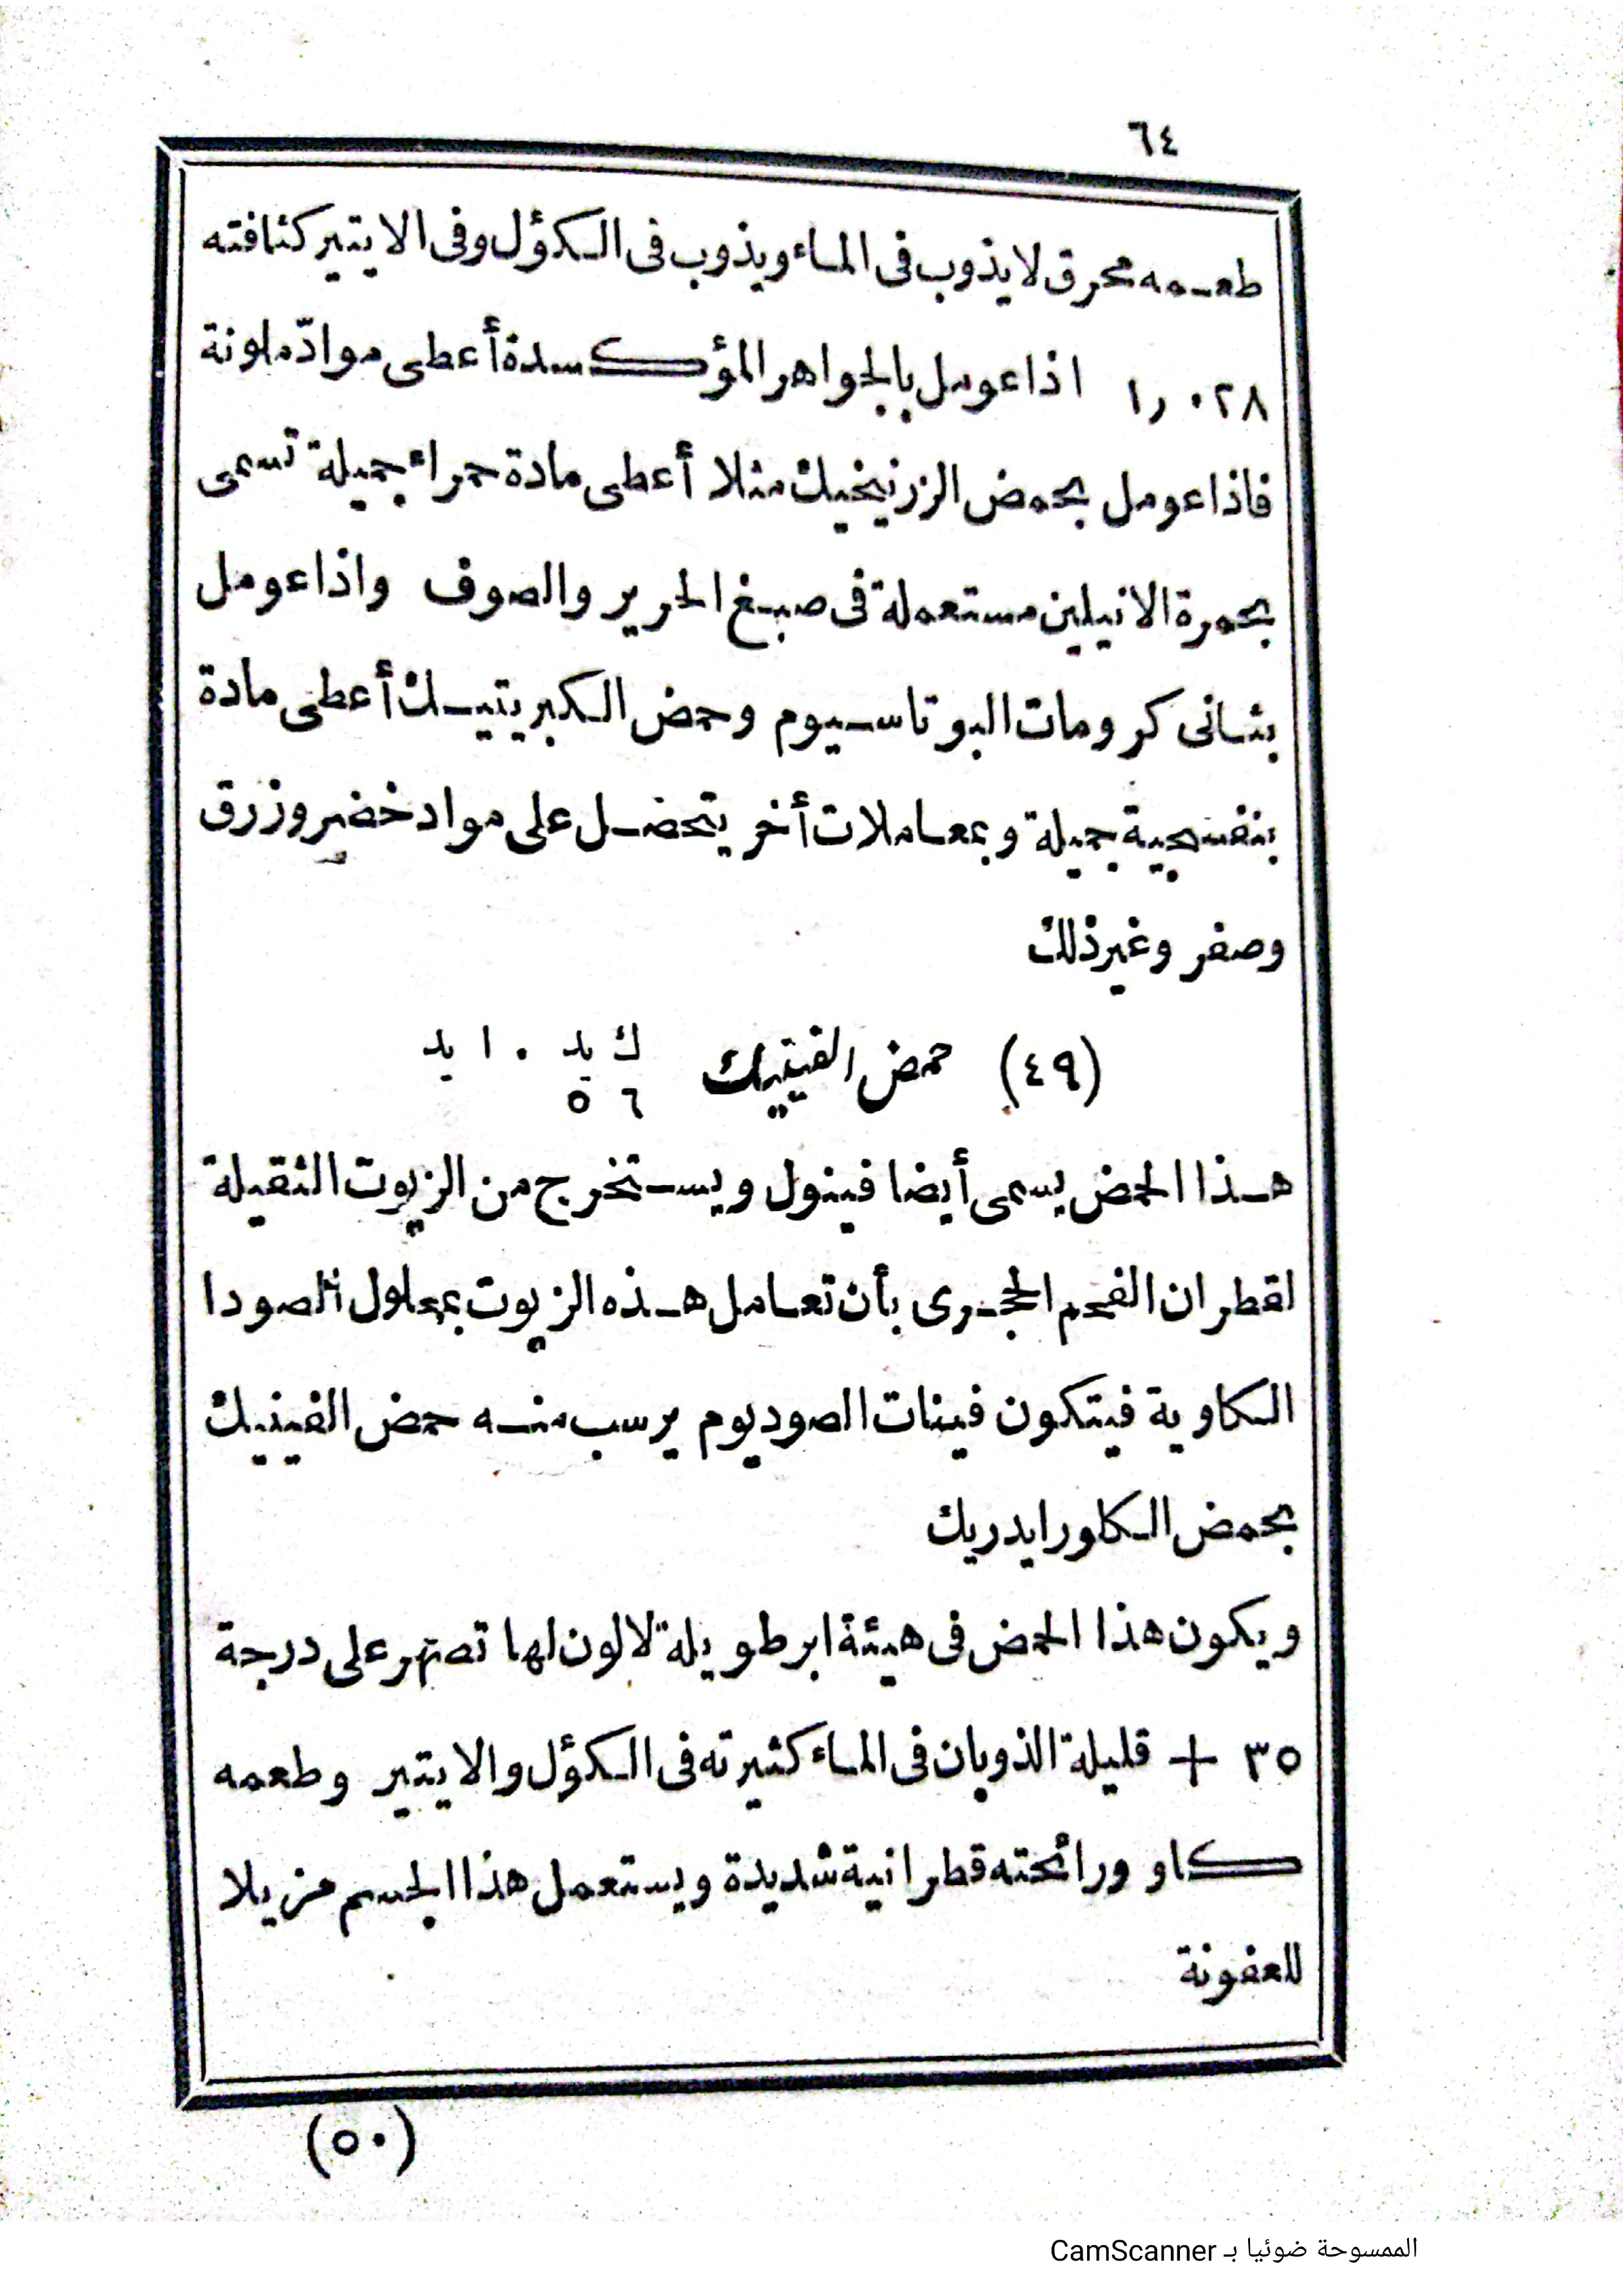 ٦٤
طعمه محرق لا يذوب فى الماء ويذوب فى الكؤل وفى الايتير كثافته
١٫٠٢٨ اذا عومل بالجواهر المؤكسدة أعطى موادّ ملونة
فاذا عومل بحمض الزرنيخيك مثلا أعطى مادة حمراء جميلة تسمى
بحمرة الانيلين مستعملة فى صبغ الحرير والصوف واذا عومل
بثانى كرومات البوتاسيوم وحمض الكبريتيك أعطى مادة
بنفسجية جميلة وبمعاملات أخر يتحصل على مواد خضر وزرق
وصفر وغير ذلك
(٤٩) حمض الفينيك ك يد ٠ ا يد
٦ ٥
هذا الحمض يسمى أيضا فينول ويستخرج من الزيوت الثقيلة
لقطران الفحم الحجرى بأن تعامل هذه الزيوت بمحلول الصودا
الكاوية فيتكون فينات الصوديوم يرسب منه حمض الفينيك
بحمض الكلورايدريك
ويكون هذا الحمض فى هيئة ابر طويلة لا لون لها تصهر على درجة
٣٥ + قليلة الذوبان فى الماء كثيرته فى الكؤل والايتير وطعمه
كاو ورائحته قطرانية شديدة ويستعمل هذا الجسم مزيلا
للعفونة
(٥٠)
الممسوحة ضوئيا بـ CamScanner